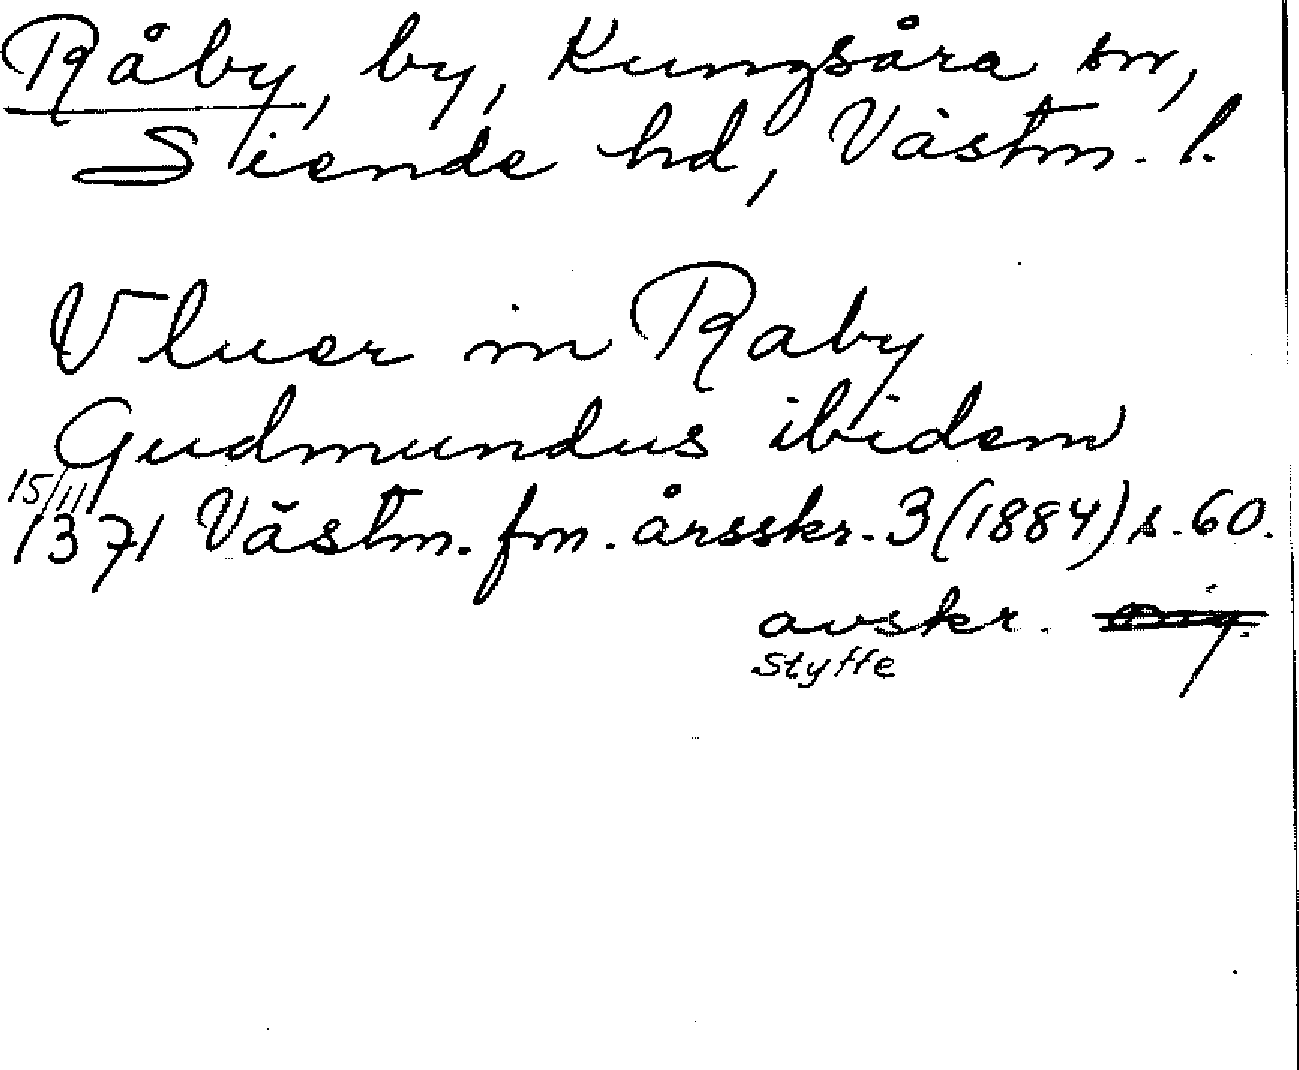 Råby, by, Kungsåra sn,
Siende hd, Västm. l.
Vluer in Raby
Gudmundus ibidem
15/11
1371 Västm. fm. årsskr. 3 (1884) s. 60.
avskr.
Styffe